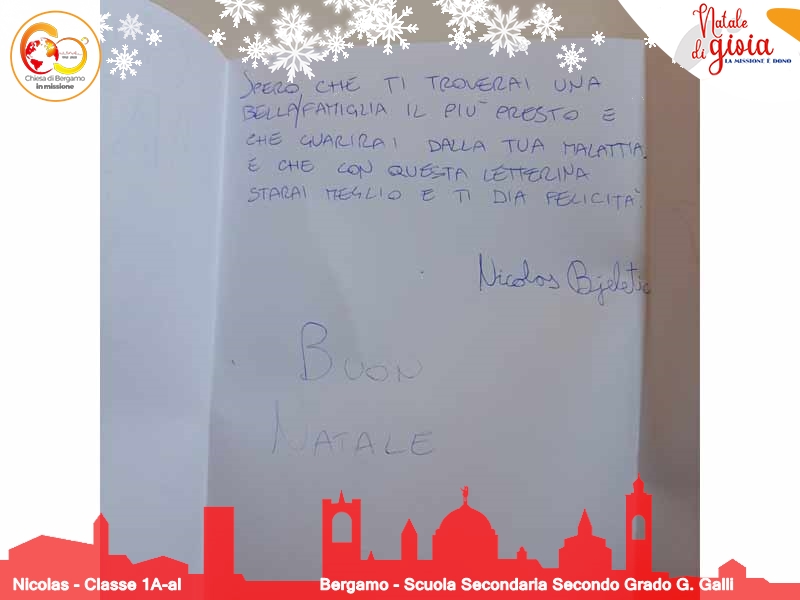 Chiesa di Bergamo
in missione
Natale
di gioia
LA MISSIONE È DONO
SPERO CHE TI TROVERAI UNA
BELLA FAMIGLIA IL PIU' PRESTO E
CHE GUARIRAI DALLA TUA MALATTIA.
E CHE CON QUESTA LETTERINA
STARAI MEGLIO E TI DIA FELICITA'.
Nicolas Bjeletic
BUON
NATALE
Nicolas - Classe 1A-al
Bergamo - Scuola Secondaria Secondo Grado G. Galli